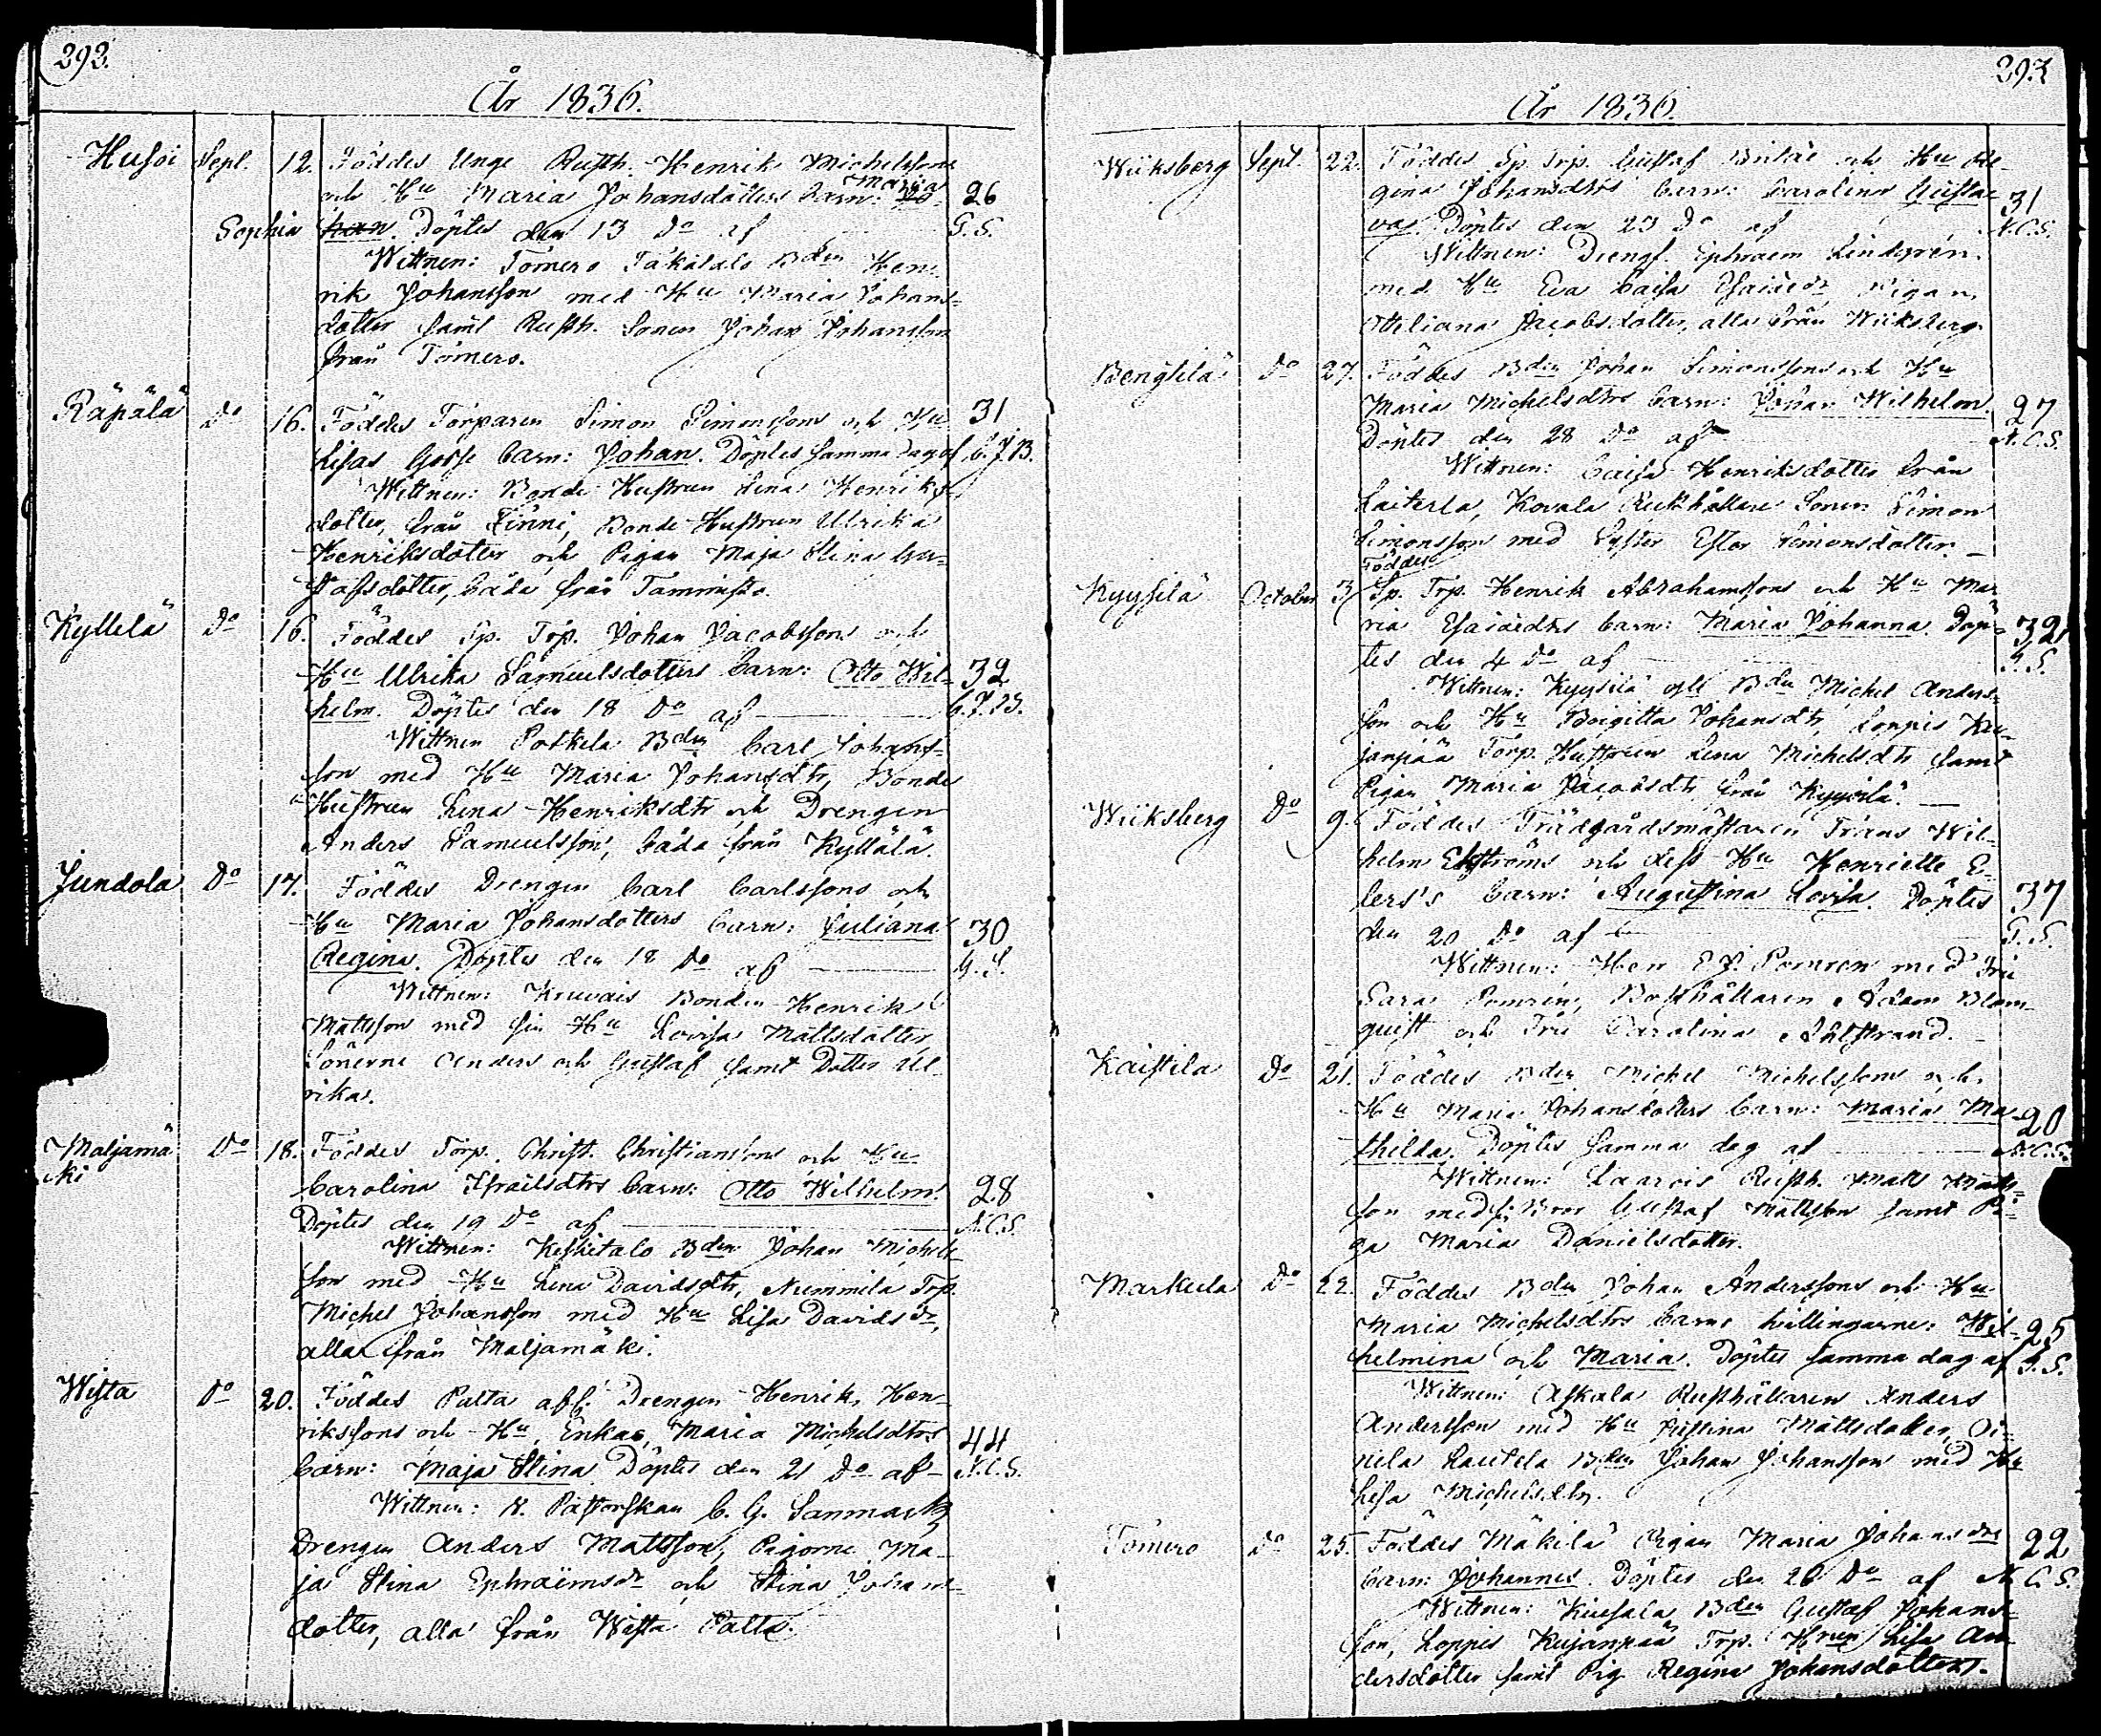 292.
År 1836.
Husoi Sept. 12. Föddes Unge Rusth. Henrik Michelssons
och Hu Maria Johansdotters barn: Maria Jo- 26
Sophia han. Döptes den 13 Do af G. S.
Wittnen: Tömero Bden Hen-
rik Johansson med Hu Maria Johans-
dotter samt Rusth. Sonen Johan Johansson
från Tömero.
Räpälä Do 16. Föddes Torparen Simon Simonssons och Hu 31
Lisas barn: Johan. Döptes samma dag af C. J. B.
Wittnen: Bonde Hustrun Lena Henriks-
dotter, från Finni, Bonde Hustrun Ulrika
Henriksdotter och Pigan Maja Stina Gu-
stafsdotter, båda från Tammisto.
Kyllelä Do 16. Föddes Sp. Trp. Johan Jacobssons och
Hu Ulrika Samuelsdotters barn: Otto Wil- 32
helm. Döptes den 18 Do af C. J. B.
Wittnen Potkela Bden Carl Johans-
son med Hu Maria Johansdtr, Bonde
Hustrun Lena Henriksdtr och Drengen
Anders Samuelsson, båda från Kyllälä.
Jundola Do 17. Föddes Drengen Carl Carlssons och
Hu Maria Johansdotters barn: Juliana 30
Regina. Döptes den 18 Do af G. S.
Wittnen: Kruvais Bonden Henrik
Mattsson med sin Hu Lovisa Mattsdotter,
Sönerne Anders och Gustaf samt Dotter Ul-
rika.
Maljamä Do 18. Föddes Torp. Christ. Christianssons och Hu
ki Carolina Isräilsdtrs barn: Otto Wilhelm. 28
Döptes den 19 Do af N. C. S.
Wittnen: Keskitalo Bden Johan Michels-
son med Hu Lena Davidsdtr, Nummila Trp.
Michel Johansson med Hu Lisa Davidsdr,
alla från Maljamäki.
Wista Do 20. Föddes Palta Drengen Henrik Hen-
rikssons och Hu, Enkas, Maria Michelsdtrs 44
barn: Maja Stina Döptes den 21 Do af N. C. S.
Wittnen: V. Pastorskan C. G. Sanmark,
Drengen Anders Mattsson, Pigorne Ma-
ja Stina Ephraimsdr och Stina Johans-
dotter, alla från Wista Palta.
293
År 1836.
Wiiksberg Sept. 22. Föddes Sp. Trp. Gustaf och Hu Re-
gina Johansdtrs barn: Carolina Gusta- 31
va. Döptes den 23 Do af N. C. S.
Wittnen: Drengf. Ephraem Lindgren
med Hu Eva Caisa Esaiædr, Pigan
Otteliana Jacobsdotter, alla från Wiiksberg.
Bengtilä Do 27. Föddes Bden Johan Simonssons och Hu
Maria Michelsdtrs barn: Johan Wilhelm. 27
Döptes den 28 Do af N. C. S.
Wittnen: Caisa Henriksdotter från
Laiterla, Kovala Rusthållare Sonen Simon
Simonsson med Syster Ester Simonsdotter.
Föddes
Kyysilä October 3. Sp. Trp. Henrik Abrahamssons och Hu Ma-
ria Esaiædtrs barn: Maria Johanna. Döp- 32
tes den 4 Do af G. S.
Wittnen: Kyysilä Bden Michel Anders-
son och Hu Boigitta Johansdtr, Loppis Ku-
janpää Torp. Hustrun Lena Michelsdtr samt
Pigan Maria Jacobsdtr från Kyysilä.
Wiiksberg Do 9. Föddes Trädgårdsmästaren Frans Wil-
helm Ekströms och dess Hu Henriette E-
lers's barn: Augustina Lovisa. Döptes 37
den 20 Do af G. S.
Wittnen: Herr E. J. Pomren med Fru
Sara Pomrén, Bokhållaren Adam Blom-
quist och Fru Carolina Ahlstrand.
Kaistila Do 21. Föddes Bden Michel Michelssons och
Hu Maria Johansdotters barn: Maria Ma- 20
thilda. Döptes samma dag af N. C. S.
Wittnen: Laurois Rusth. Matts Matts-
son med s. Bror Gustaf Mattsson samt Pi-
ga Maria Danielsdotter.
Markula Do 22. Föddes Bden Johan Anderssons och Hu
Maria Michelsdtrs barns tvillingarne: Wil- 25
helmina och Maria. Döptes samma dag af G. S.
Wittnen: Askala Rusthållaren Anders
Andersson med Hu Justina Mattsdotter, Oi-
nila Rautela Bden Johan Johansson med Hu
Lisa Michelsdtr.
Tömero Do 25. Föddes Mäkilä Pigan Maria Johansdrs 22
barn: Johannes. Döptes den 26 Do af N. C. S.
Wittnen: Kuusala Bden Gustaf Johans-
son, Loppis Kujanpää Trp. Hrun Lisa An-
dersdotter samt Pig. Regina Johansdotter.